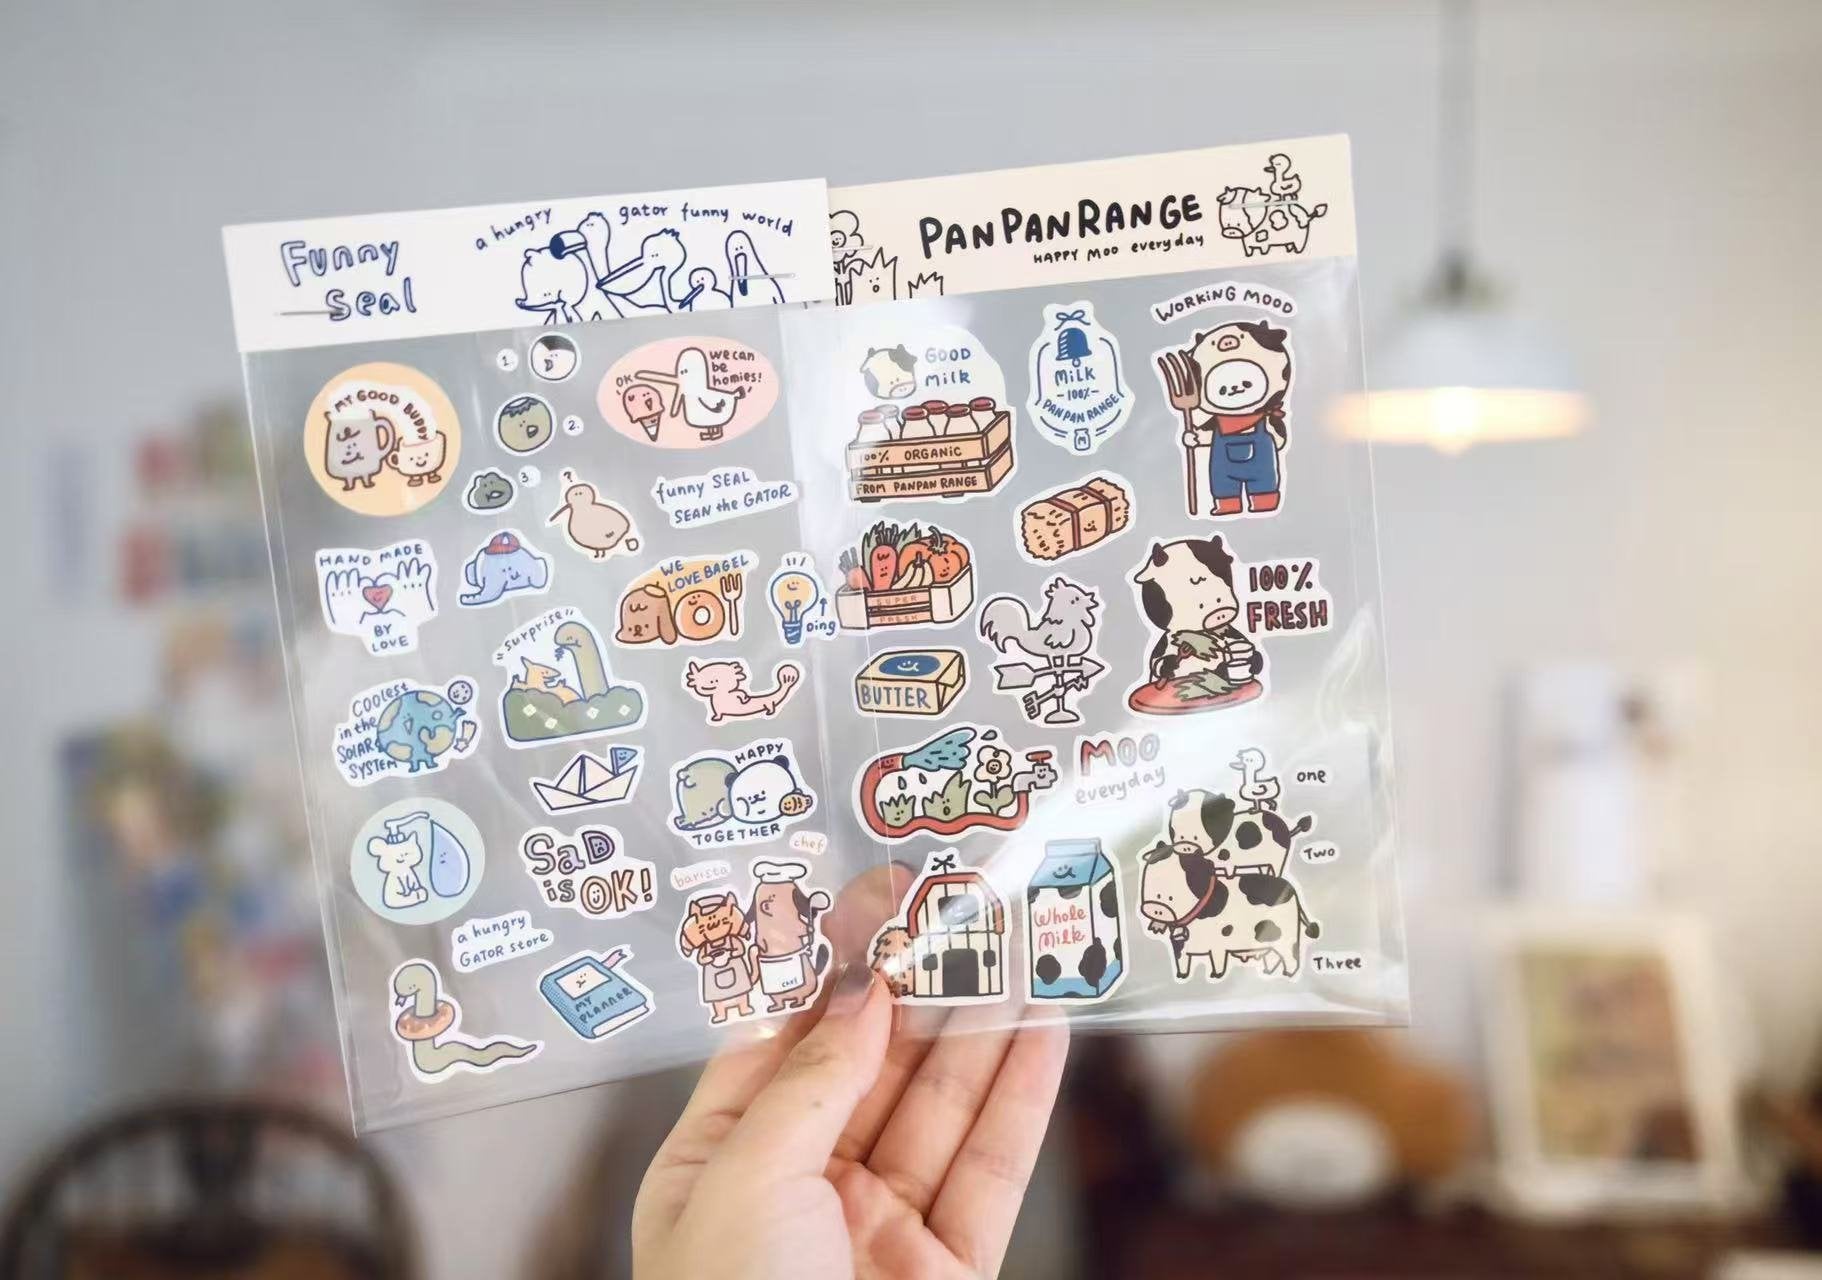 Funny
Seal
a hungry gator funny world
MY GOOD BUDDY
1.
2.
3.
OK
we can
be
homies!
?
funny SEAL
SEAN the GATOR
HAND MADE
BY
LOVE
WE
LOVE BAGEL
Ding
surprise!!
COOLEST
in the
SOLAR
SYSTEM
HAPPY
TOGETHER
SaD
is OK!
chef
barista
chef
a hungry
GATOR store
MY
PLANNER
PANPANRANGE
HAPPY MOO everyday
GOOD
Milk
100% ORGANIC
FROM PANPAN RANGE
MiLK
-100%-
PANPAN RANGE
M
WORKING MOOD
SUPER
FRESH
100%
FRESH
BUTTER
MOO
everyday
Whole
Milk
one
Two
Three